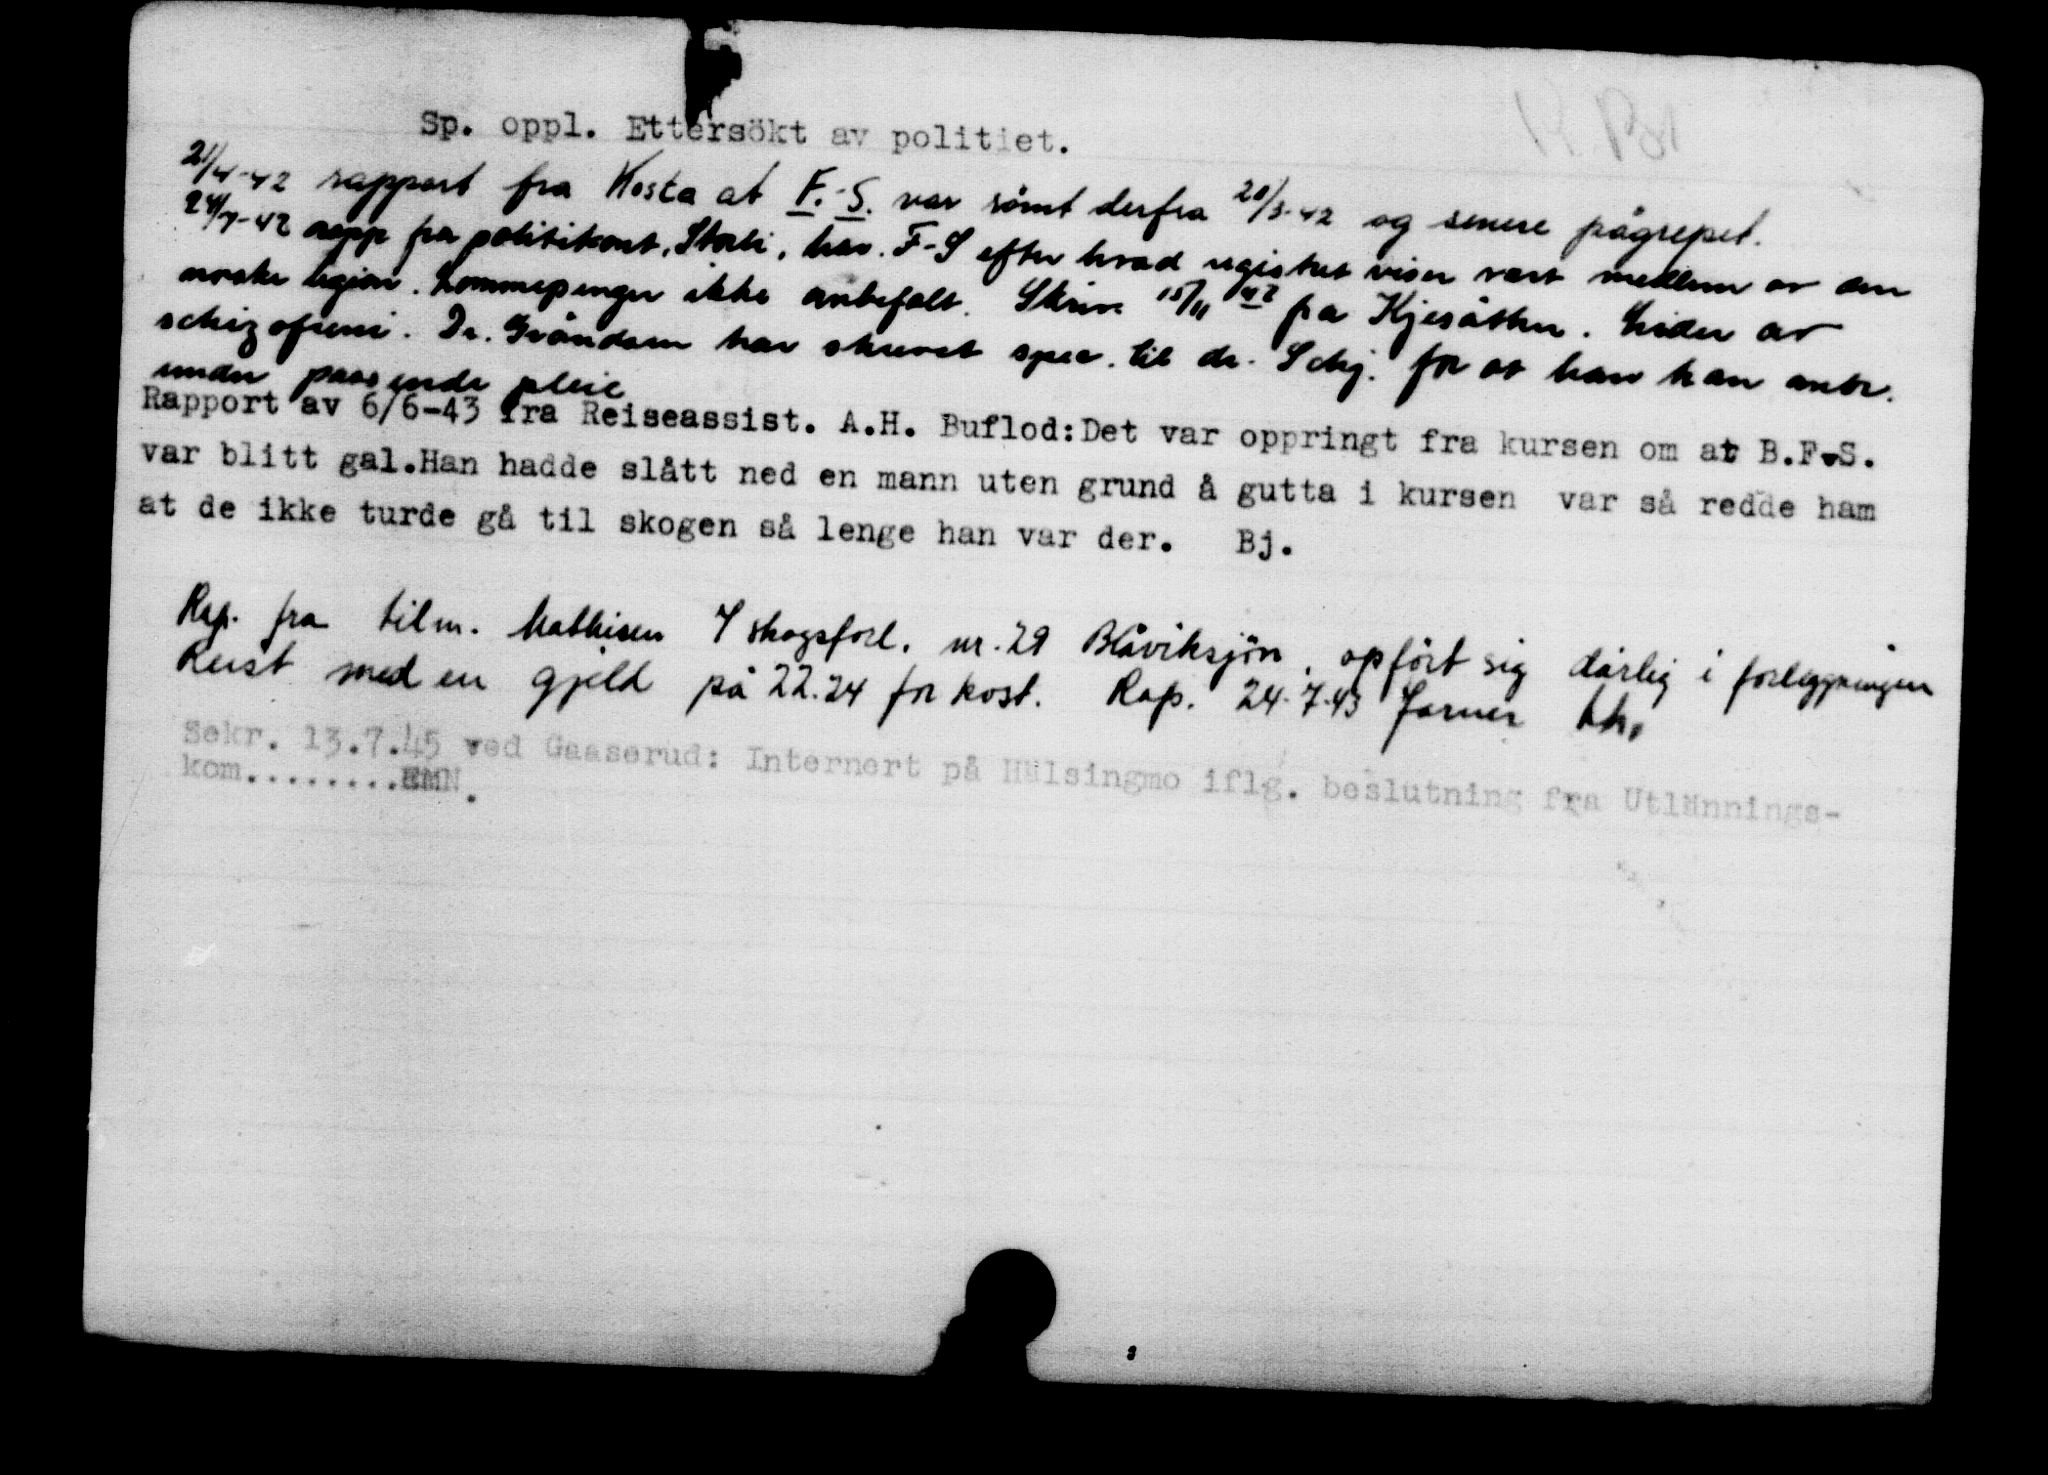 Sp. oppl. Ettersökt av politiet.
21/4-42 rapport fra Hosta at F.-S. var römt derfra 20/3-42 og senere pågrepet.
24/7-42 rapp fra politikont, Storli, har. F-S efter hvad registret viser vært medlem av den
norske legion. Lommepenger ikke anbefalt. Skriv. 15/11 42 fra Kjesäter. Lider av
schizofreni. Dr. Gråndsen har skrevet spec. til dr. Schj. for at han kan anbr.
under passende pleie
Rapport av 6/6-43 fra Reiseassist. A.H. Buflod:Det var oppringt fra kursen om at B.F-S.
var blitt gal.Han hadde slått ned en mann uten grund å gutta i kursen var så redde ham
at de ikke turde gå til skogen så lenge han var der. Bj.
Rap. fra tilm. Mathisen I skogsforl. nr. 29 Blåviksjön, opfört sig dårlig i forleggningen
Reist med en gjeld på 22.24 for kost. Rap. 24-7-43 Farner
Sekr. 13.7.45 ved Gaaserud: Internert på Hälsingmo iflg. beslutning fra Utlännings-
kom........EMN.